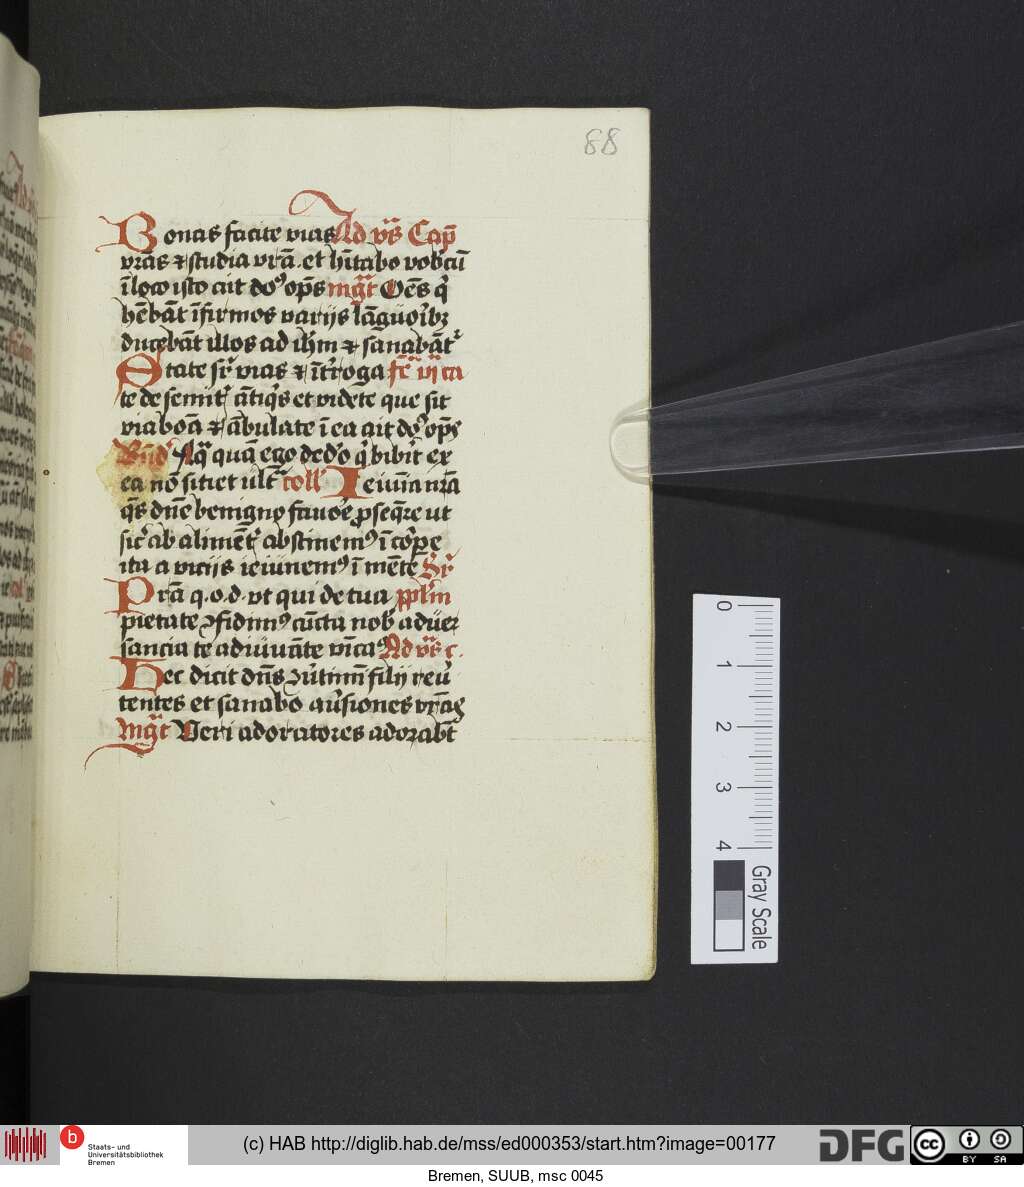 88
Bonas facite vias Ad vs̄ Cap̄
vrās ⁊ studia vrā. et hītabo vobcū
ī loco isto ait do⁹ op̄s mg̅t Oēs q̇
hēbāt īfirmos varijs lāguoībꝫ
ducebāt illos ad ihm̄ ⁊ sanabāt᷑
State sr̄ vias ⁊ ītroga fē vj ca
te de semit᷑ ātiq̇s et videte que sit
via boā ⁊ ābulate ī ea ait do⁹ op̄s
Bn̄d Aq̄ quā ego dedo q̇ bibit ex
ea nō sitiet ult᷑ coll᷑ Ieiuīa nrā
q̄s dn̄e benigno fauoē ꝓseq̄re ut
sic᷑ ab alimēt᷑ abstinem⁹ ī cor̄pe
ita a vicijs ieiunem⁹ ī mēte Sr̄
Prā q.o.d. vt qui de tua ppl̄m
pietate ꝯfidim⁹ cūcta nob aduer
sancia te adiuuāte vīca⁹ Ad vs̄ c.
Hec dicit dn̄s ꝯūtimī filij reū
tentes et sanabo aūsiones vrās
Mg̅t Veri adoratores adorabt̄
0
1
2
3
4
Gray Scale
b
Staats- und
Universitätsbibliothek
Bremen
(c) HAB http://diglib.hab.de/mss/ed000353/start.htm?image=00177
DFG
cc
BY SA
Bremen, SUUB, msc 0045